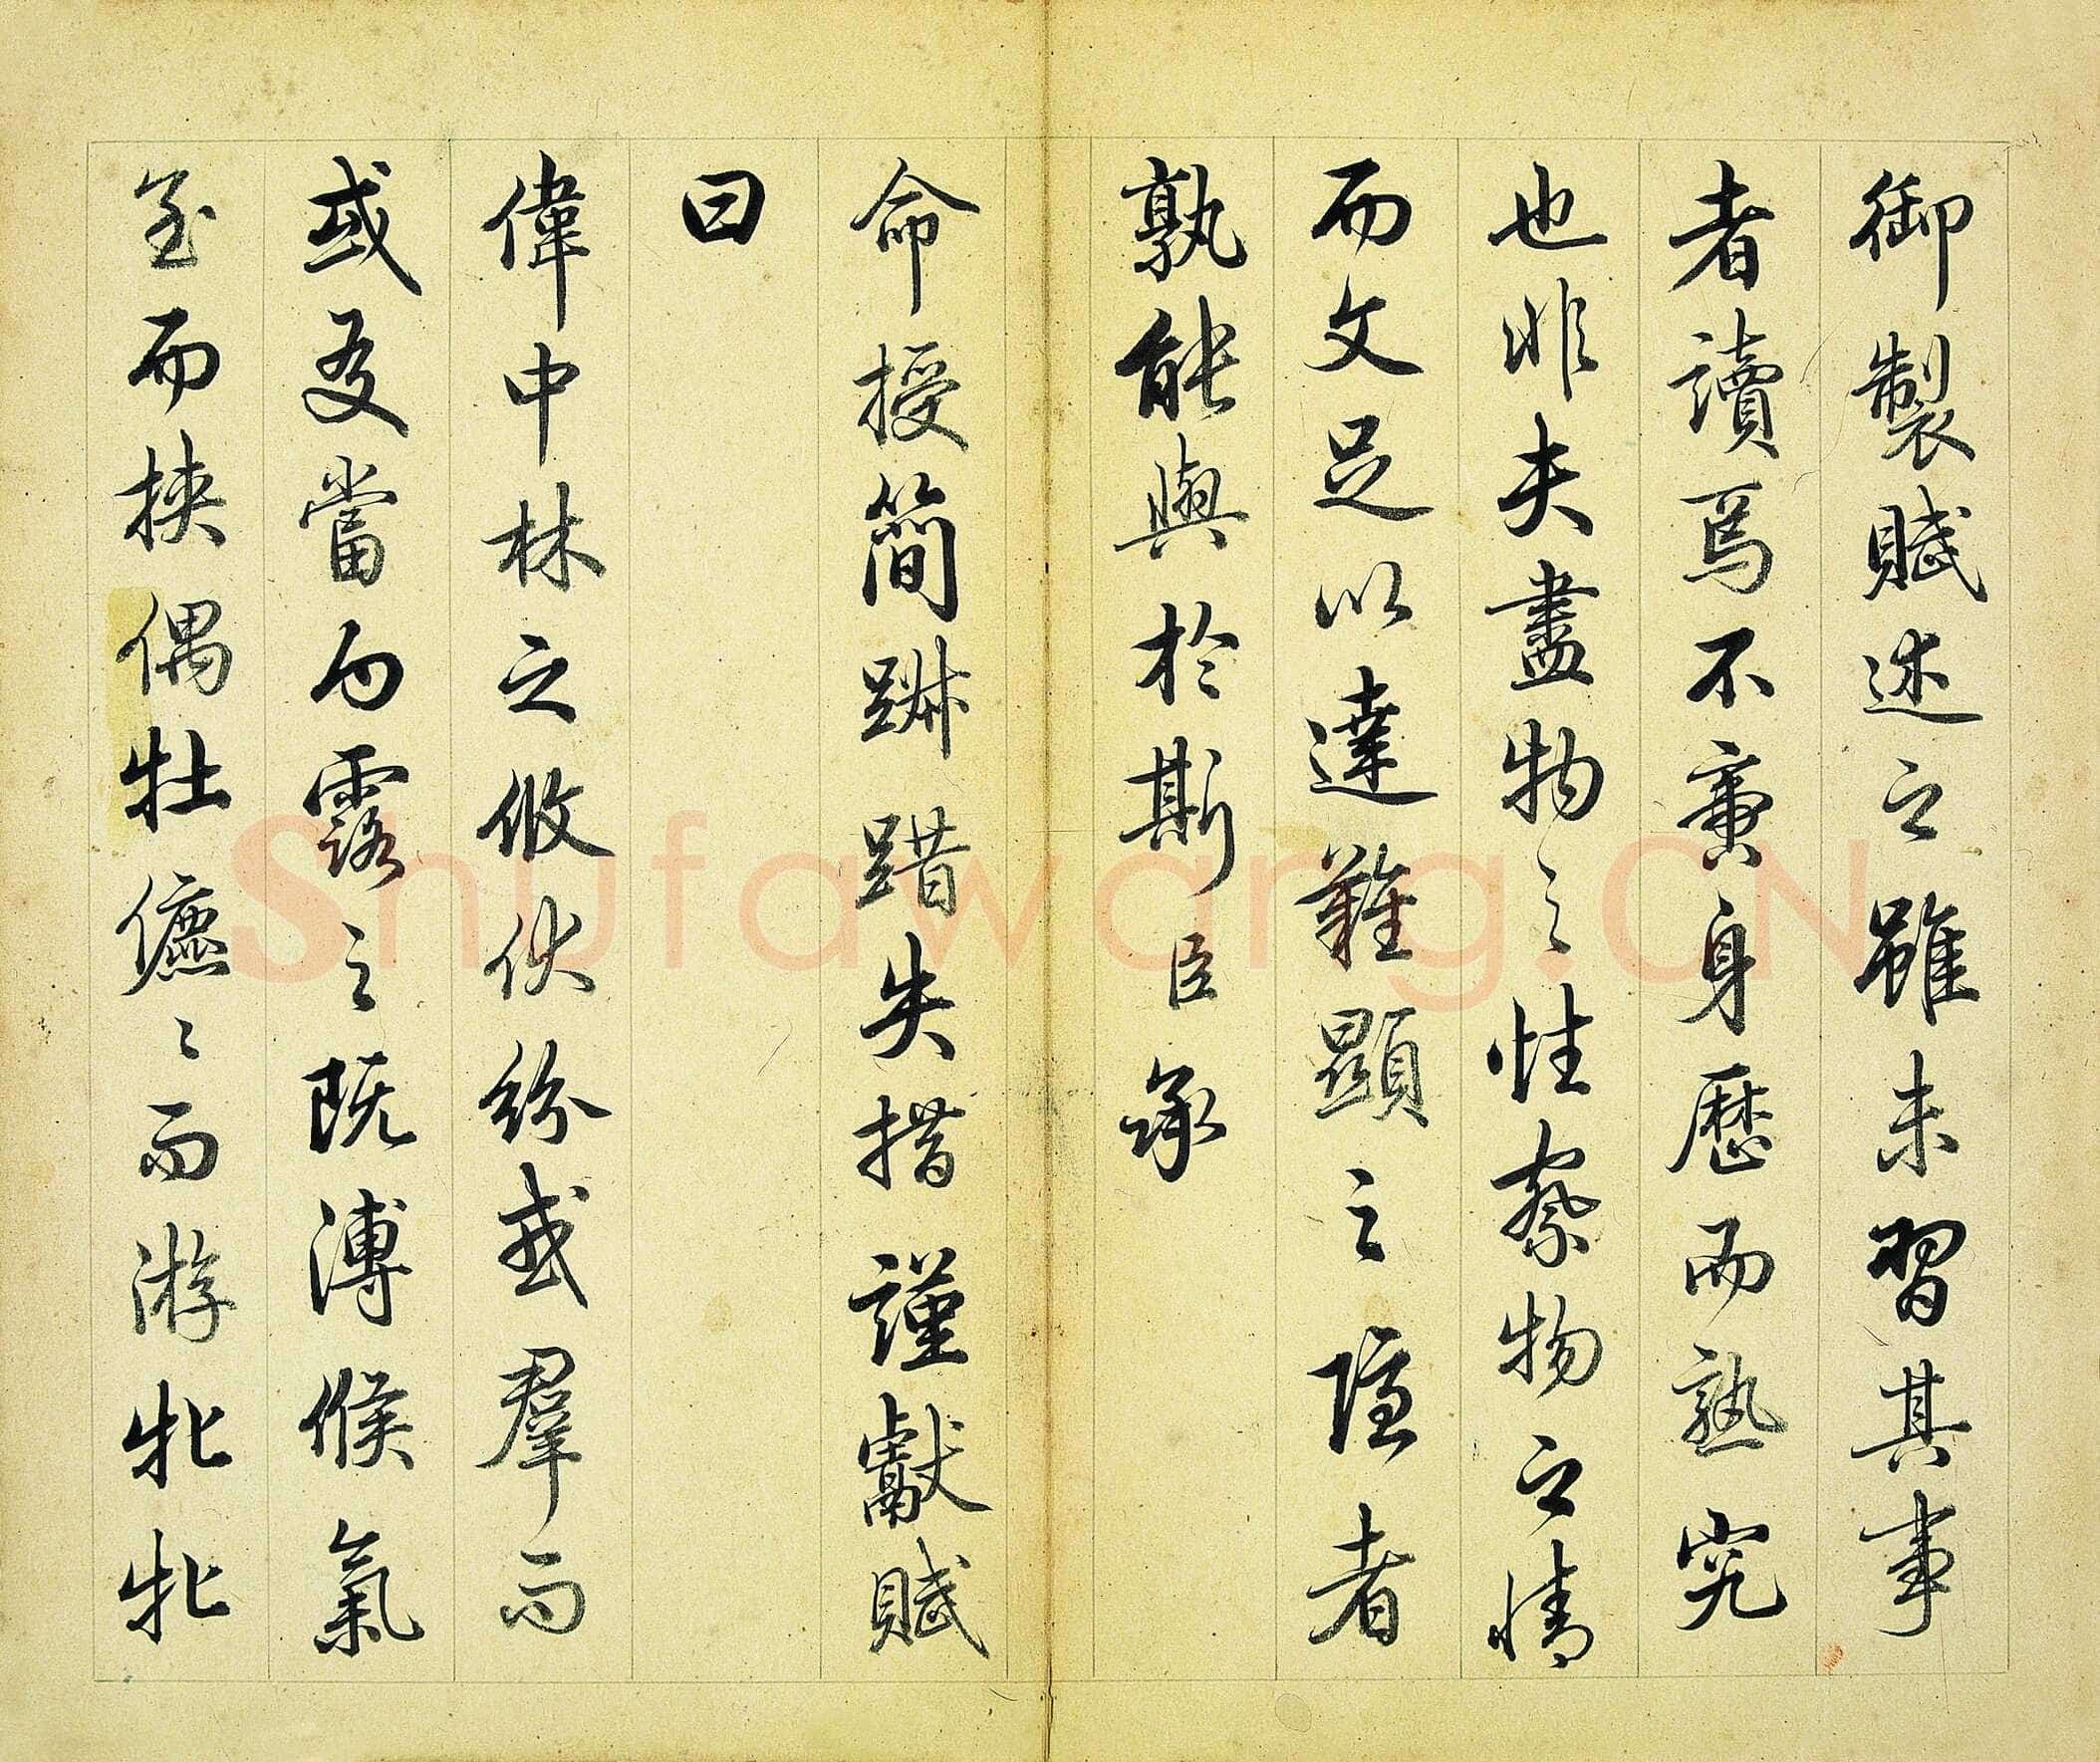 御製賦述之雖未習其事
者讀焉不啻身歷而熟究
也非夫盡物之性察物之情
而文足以達難顯之隱者
孰能與於斯臣承
命授簡踧踖失措謹獻賦
曰
偉中林之攸伏紛或羣而
或友當白露之既漙候氣
至而挾偶牡儦〻而游牝牝
Shufawang.CN